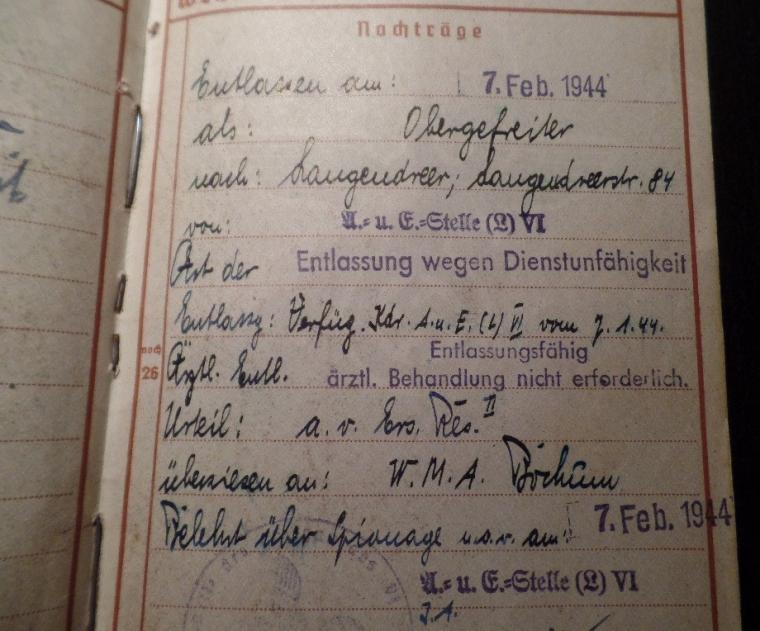 Nachträge
Entlassen am: 7. Feb. 1944
als: Obergefreiter
nach: Langendreer, Langendreerstr. 84
von: A.- u. E.-Stelle (L) VI
Art der Entlassung wegen Dienstunfähigkeit
Entlassg: Verfüg. Kdr. A.u.E.(L) VI vom 7.1.44.
noch
26
Entlassungsfähig
Ärztl. Entl. ärztl. Behandlung nicht erforderlich.
Urteil: a. v. Ers. Res. II
überwiesen an: W.M.A. Bochum
Belehrt über Spionage u.s.w. am: 7. Feb. 1944
A.- u. E.-Stelle (L) VI
I.A.